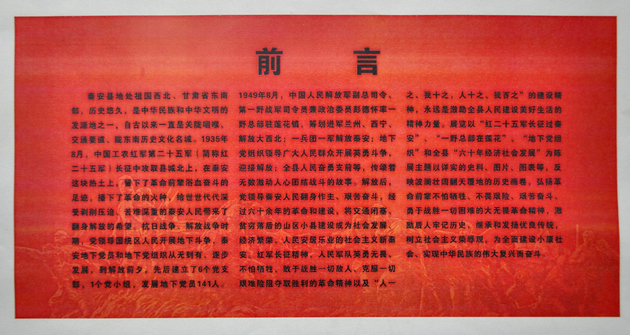 前言
秦安县地处祖国西北、甘肃省东南
部，历史悠久，是中华民族和中华文明的
发源地之一，自古以来一直是关陇咽喉、
交通要道、陇东南历史文化名城。1935年
8月，中国工农红军第二十五军（简称红
二十五军）长征中攻翻县城北上，在秦安
这块热土上，播下了革命前辈浴血奋斗的
足迹，播下了革命的火种，给世世代代深
受剥削压迫、苦难深重的秦安人民带来了
翻身解放的希望。抗日战争、解放战争时
期，党领导国统区人民开展地下斗争，秦
安地下党员和地下党组织从无到有、逐步
发展，到解放前夕，先后建立了6个党支
部、1个党小组，发展地下党员141人。
1949年8月，中国人民解放军副总司令、
第一野战军司令员兼政治委员彭德怀率一
野总部驻莲花镇，筹划进军兰州、西宁，
解放大西北；一兵团一军解放秦安；地下
党组织领导广大人民群众开展英勇斗争，
迎接解放；全县人民奋勇支前等，传颂着
无数激动人心团结战斗的故事。解放后，
党领导秦安人民翻身作主、艰苦奋斗，经
过六十余年的革命和建设，将交通闭塞、
贫穷落后的山区小县建设成为社会发展、
经济繁荣、人民安居乐业的社会主义新秦
安。红军长征精神，人民军队英勇无畏、
不怕牺牲、敢于战胜一切敌人、克服一切
艰难险阻夺取胜利的革命精神以及“人一
之，我十之，人十之，我百之”的建设精
神，永远是激励全县人民建设美好生活的
精神力量。展览以“红二十五军长征过秦
安”、“一野总部在莲花”、“地下党组
织”和全县“六十年经济社会发展”为陈
展主题以详实的史料、图片、图表等，反
映波澜壮阔翻天覆地的历史画卷，弘扬革
命前辈不怕牺牲、不畏艰险、艰苦奋斗、
勇于战胜一切困难的大无畏革命精神，激
励后人牢记历史，继承和发扬优良传统，
树立社会主义荣辱观，为全面建设小康社
会、实现中华民族的伟大复兴而奋斗。